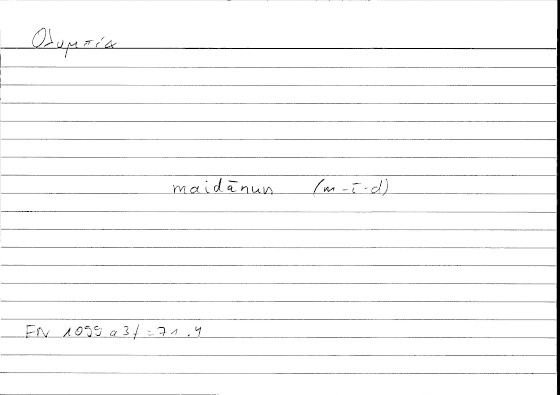 Ολυμπία
maidānun (m-ī-d)
EN 1099 a3/=71.4